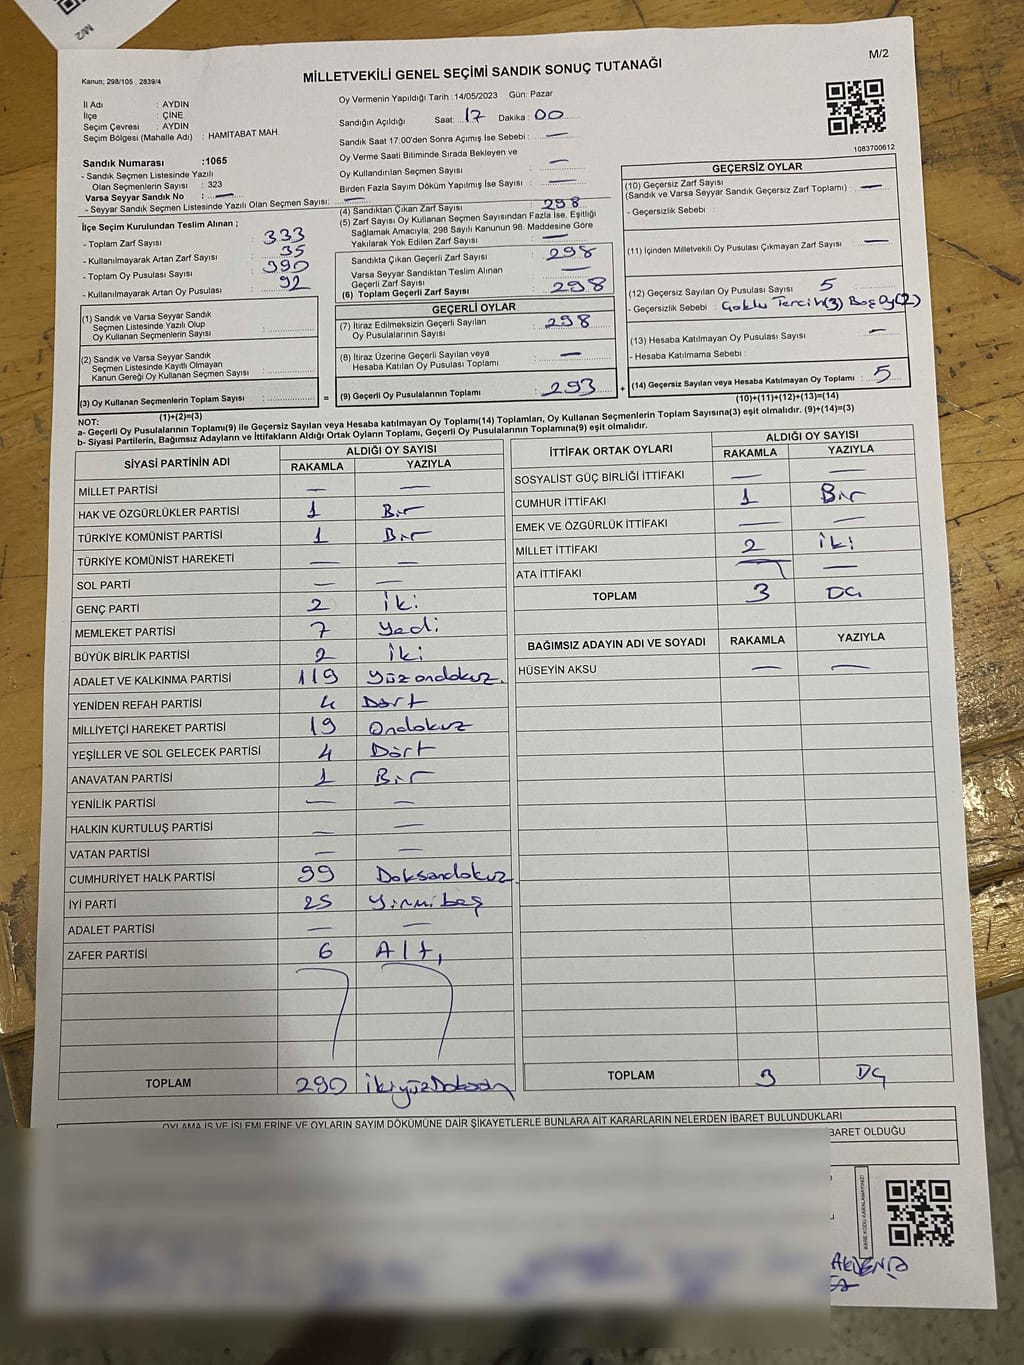 M/2
M/2
Kanun; 298/105 , 2839/4
MİLLETVEKİLİ GENEL SEÇİMİ SANDIK SONUÇ TUTANAĞI
İl Adı : AYDIN
İlçe : ÇİNE
Seçim Çevresi : AYDIN
Seçim Bölgesi (Mahalle Adı) : HAMITABAT MAH.
Sandık Numarası :1065
- Sandık Seçmen Listesinde Yazılı
Olan Seçmenlerin Sayısı : 323
Varsa Seyyar Sandık No : —
- Seyyar Sandık Seçmen Listesinde Yazılı Olan Seçmen Sayısı: —
Oy Vermenin Yapıldığı Tarih :14/05/2023 Gün: Pazar
Sandığın Açıldığı Saat: 17 Dakika : 00
Sandık Saat 17:00'den Sonra Açımış İse Sebebi : —
Oy Verme Saati Bitiminde Sırada Bekleyen ve
Oy Kullandırılan Seçmen Sayısı : —
Birden Fazla Sayım Döküm Yapılmış İse Sayısı : —
1083700612
İlçe Seçim Kurulundan Teslim Alınan ;
- Toplam Zarf Sayısı : 333
- Kullanılmayarak Artan Zarf Sayısı : 35
- Toplam Oy Pusulası Sayısı : 390
- Kullanılmayarak Artan Oy Pusulası : 92
(1) Sandık ve Varsa Seyyar Sandık
Seçmen Listesinde Yazılı Olup
Oy Kullanan Seçmenlerin Sayısı :
(2) Sandık ve Varsa Seyyar Sandık
Seçmen Listesinde Kayıtlı Olmayan
Kanun Gereği Oy Kullanan Seçmen Sayısı :
(3) Oy Kullanan Seçmenlerin Toplam Sayısı :
(1)+(2)=(3)
(4) Sandıktan Çıkan Zarf Sayısı : 298
(5) Zarf Sayısı Oy Kullanan Seçmen Sayısından Fazla İse, Eşitliği
Sağlamak Amacıyla; 298 Sayılı Kanunun 98. Maddesine Göre
Yakılarak Yok Edilen Zarf Sayısı : —
Sandıkta Çıkan Geçerli Zarf Sayısı : 298
Varsa Seyyar Sandıktan Teslim Alınan
Geçerli Zarf Sayısı : —
(6) Toplam Geçerli Zarf Sayısı : 298
GEÇERLİ OYLAR
(7) İtiraz Edilmeksizin Geçerli Sayılan
Oy Pusulalarının Sayısı : 298
(8) İtiraz Üzerine Geçerli Sayılan veya
Hesaba Katılan Oy Pusulası Toplamı : —
= (9) Geçerli Oy Pusulalarının Toplamı : 293 +
GEÇERSİZ OYLAR
(10) Geçersiz Zarf Sayısı
(Sandık ve Varsa Seyyar Sandık Geçersiz Zarf Toplamı) : —
- Geçersizlik Sebebi :
(11) İçinden Milletvekili Oy Pusulası Çıkmayan Zarf Sayısı : —
(12) Geçersiz Sayılan Oy Pusulası Sayısı : 5
- Geçersizlik Sebebi : Çoklu Tercih(3) Boş Oy(2)
(13) Hesaba Katılmayan Oy Pusulası Sayısı : —
- Hesaba Katılmama Sebebi :
(14) Geçersiz Sayılan veya Hesaba Katılmayan Oy Toplamı : 5
(10)+(11)+(12)+(13)=(14)
NOT:
a- Geçerli Oy Pusulalarının Toplamı(9) ile Geçersiz Sayılan veya Hesaba katılmayan Oy Toplamı(14) Toplamları, Oy Kullanan Seçmenlerin Toplam Sayısına(3) eşit olmalıdır. (9)+(14)=(3)
b- Siyasi Partilerin, Bağımsız Adayların ve İttifakların Aldığı Ortak Oyların Toplamı, Geçerli Oy Pusulalarının Toplamına(9) eşit olmalıdır.
SİYASİ PARTİNİN ADI ALDIĞI OY SAYISI
RAKAMLA YAZIYLA
MİLLET PARTİSİ — —
HAK VE ÖZGÜRLÜKLER PARTİSİ 1 Bir
TÜRKİYE KOMÜNİST PARTİSİ 1 Bir
TÜRKİYE KOMÜNİST HAREKETİ — —
SOL PARTİ — —
GENÇ PARTİ 2 İki
MEMLEKET PARTİSİ 7 Yedi
BÜYÜK BİRLİK PARTİSİ 2 İki
ADALET VE KALKINMA PARTİSİ 119 Yüzondokuz.
YENİDEN REFAH PARTİSİ 4 Dört
MİLLİYETÇİ HAREKET PARTİSİ 19 Ondokuz
YEŞİLLER VE SOL GELECEK PARTİSİ 4 Dört
ANAVATAN PARTİSİ 1 Bir
YENİLİK PARTİSİ — —
HALKIN KURTULUŞ PARTİSİ — —
VATAN PARTİSİ — —
CUMHURİYET HALK PARTİSİ 99 Doksandokuz
İYİ PARTİ 25 Yirmibeş
ADALET PARTİSİ — —
ZAFER PARTİSİ 6 Altı
TOPLAM 290 İkiyüzDoksan
İTTİFAK ORTAK OYLARI ALDIĞI OY SAYISI
RAKAMLA YAZIYLA
SOSYALİST GÜÇ BİRLİĞİ İTTİFAKI — —
CUMHUR İTTİFAKI 1 Bir
EMEK VE ÖZGÜRLÜK İTTİFAKI — —
MİLLET İTTİFAKI 2 İki
ATA İTTİFAKI — —
TOPLAM 3 Üç
BAĞIMSIZ ADAYIN ADI VE SOYADI RAKAMLA YAZIYLA
HÜSEYİN AKSU — —
TOPLAM 3 Üç
OYLAMA İŞ VE İŞLEMLERİNE VE OYLARIN SAYIM DÖKÜMÜNE DAİR ŞİKAYETLERLE BUNLARA AİT KARARLARIN NELERDEN İBARET BULUNDUKLARI
BARET OLDUĞU
KARE KODU KARALAMAYINIZ!